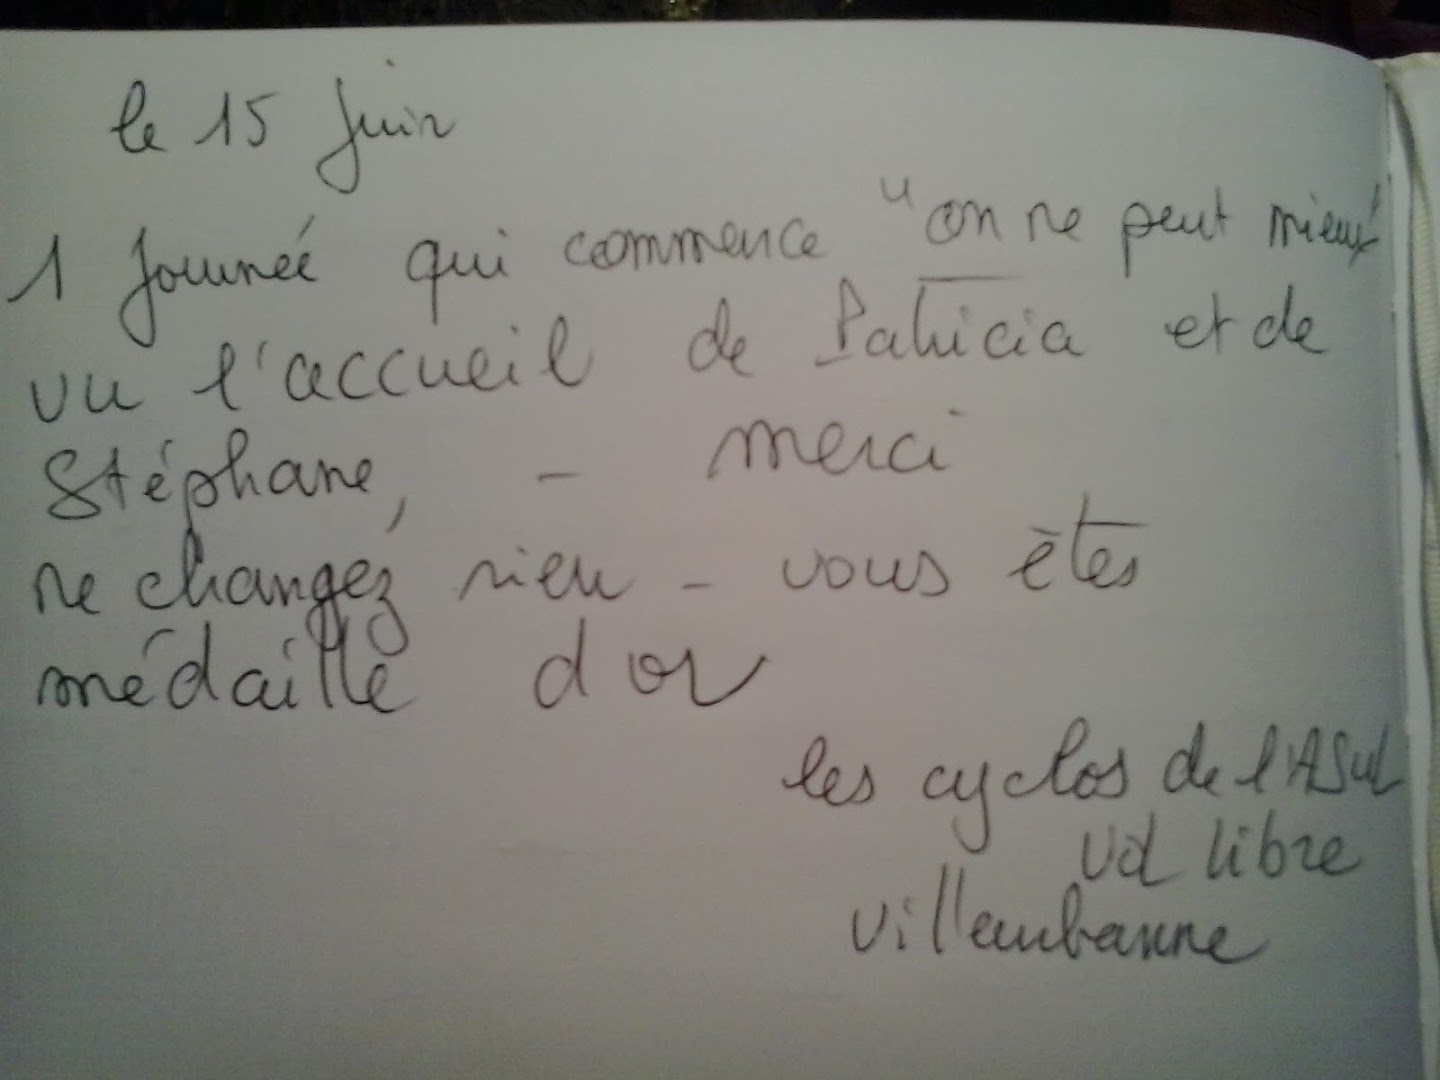 le 15 juin
1 journée qui commence "on ne peut mieux"
vu l'accueil de Patricia et de
Stéphane, - merci
ne changez rien - vous êtes
médaille d or
les cyclos de l'ASUL
Vd libre
villeurbanne